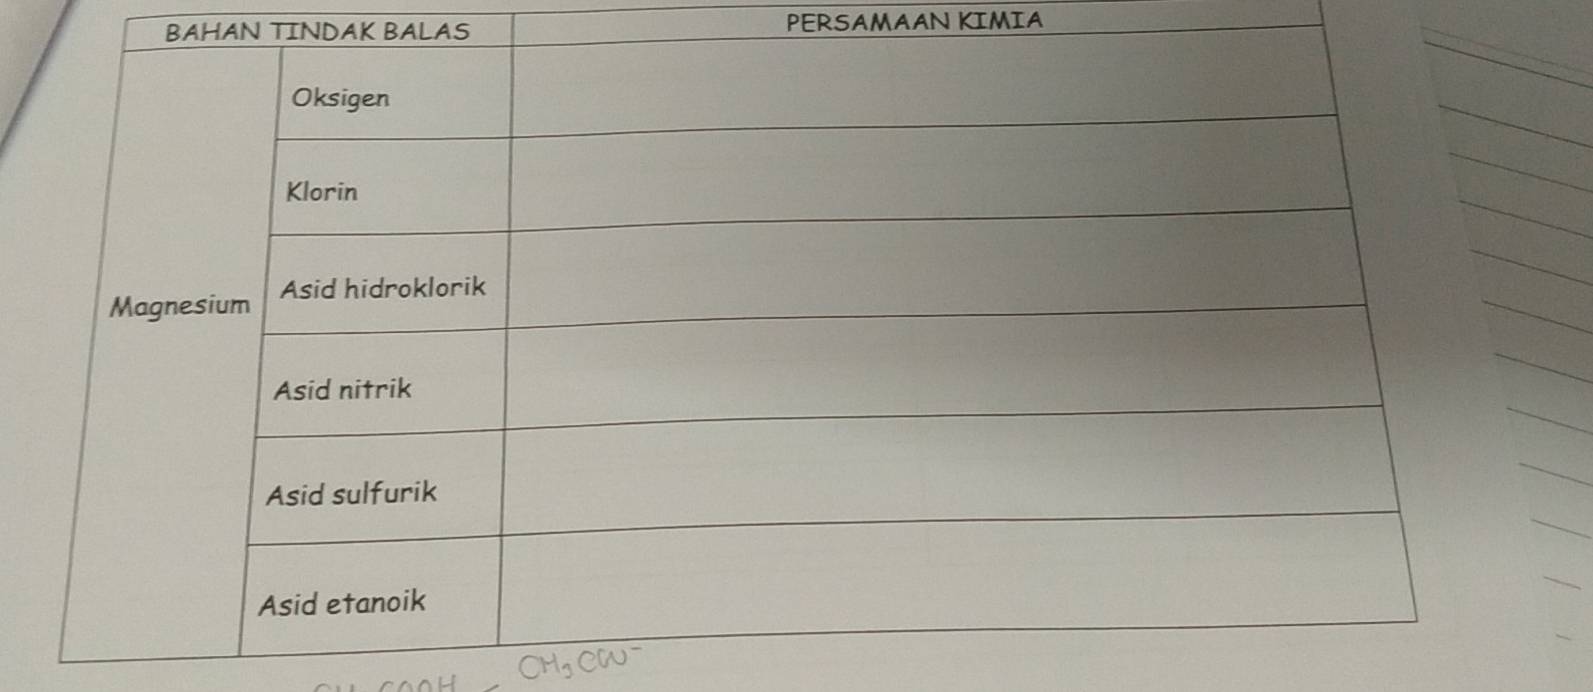 BAHAN TINDAK BALAS PERSAMAAN KIMIA
Oksigen
Klorin
Magnesium Asid hidroklorik
Asid nitrik
Asid sulfurik
Asid etanoik
COOH